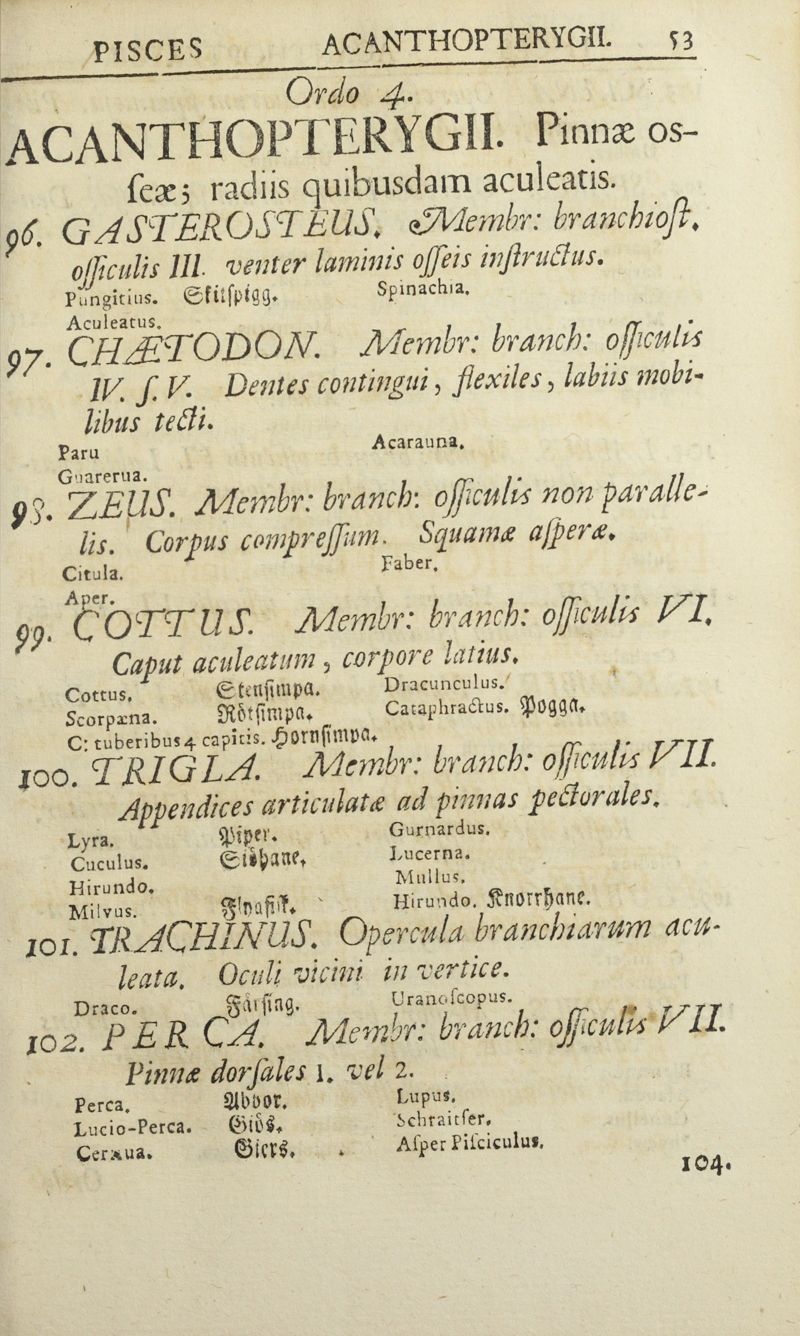 PISCES ACANTHOPTERYGII. 53
Ordo 4.
ACANTHOPTERYGII. Pinnæ os-
ſeæ; radiis quibusdam aculeatis.
96. GASTEROSTEUS. Membr: branchioſt.
oſſiculis III. venter laminis oſſeis inſtructus.
Pungitius. Skitſpigg. Spinachia.
Aculeatus.
97. CHÆTODON. Membr: branch: oſſiculis
IV. ſ. V. Dentes contingui, flexiles, labiis mobi-
libus tecti.
Paru Acarauna.
Guarerua.
98. ZEUS. Membr: branch: oſſiculis non paralle-
lis. Corpus compreſſum. Squamæ aſperæ.
Citula. Faber.
Aper.
99. COTTUS. Membr: branch: oſſiculis VI.
Caput aculeatum, corpore latius.
Cottus. Stenſimpa. Dracunculus.
Scorpæna. Rötſimpa. Cataphractus. Pogga.
C: tuberibus 4 capitis. Hornſimpa.
100. TRIGLA. Membr: branch: oſſiculis VII.
Appendices articulatæ ad pinnas pectorales.
Lyra. Piper. Gurnardus.
Cuculus. Siöhane. Lucerna.
Hirundo. Mullus.
Milvus. Hirundo. Knorrhane.
101. TRACHINUS. Opercula branchiarum acu-
leata. Oculi vicini in vertice.
Draco. Färſing. Uranoſcopus.
102. PERCA. Membr: branch: oſſiculis VII.
Pinnæ dorſales 1. vel 2.
Perca. Abbor. Lupus.
Lucio-Perca. Giös. Schraitſer.
Cernua. Giers. Aſper Piſciculus.
104.